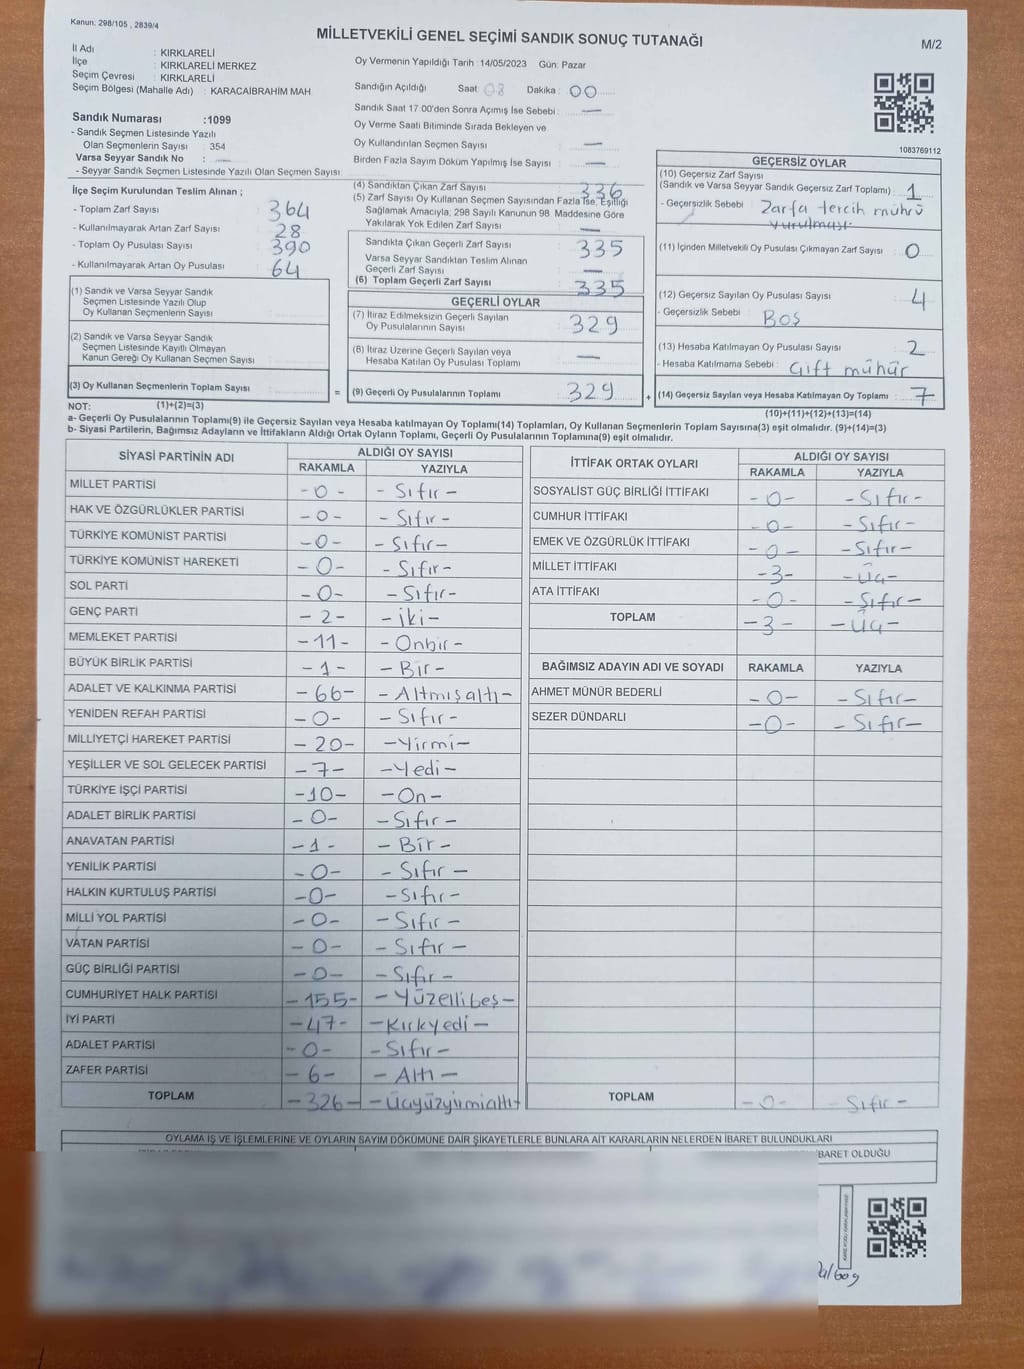 Kanun: 298/105 , 2839/4
MİLLETVEKİLİ GENEL SEÇİMİ SANDIK SONUÇ TUTANAĞI
M/2
İl Adı : KIRKLARELİ
İlçe : KIRKLARELİ MERKEZ
Seçim Çevresi : KIRKLARELİ
Seçim Bölgesi (Mahalle Adı) : KARACAİBRAHİM MAH
Sandık Numarası :1099
- Sandık Seçmen Listesinde Yazılı
Olan Seçmenlerin Sayısı : 354
Varsa Seyyar Sandık No : —
- Seyyar Sandık Seçmen Listesinde Yazılı Olan Seçmen Sayısı
Oy Vermenin Yapıldığı Tarih :14/05/2023 Gün: Pazar
Sandığın Açıldığı Saat: 08 Dakika : 00
Sandık Saat 17.00'den Sonra Açımış İse Sebebi : —
Oy Verme Saati Bitiminde Sırada Bekleyen ve
Oy Kullandırılan Seçmen Sayısı —
Birden Fazla Sayım Döküm Yapılmış İse Sayısı : —
1083769112
İlçe Seçim Kurulundan Teslim Alınan ;
- Toplam Zarf Sayısı 364
- Kullanılmayarak Artan Zarf Sayısı 28
- Toplam Oy Pusulası Sayısı 390
- Kullanılmayarak Artan Oy Pusulası 64
(1) Sandık ve Varsa Seyyar Sandık
Seçmen Listesinde Yazılı Olup
Oy Kullanan Seçmenlerin Sayısı :
(2) Sandık ve Varsa Seyyar Sandık
Seçmen Listesinde Kayıtlı Olmayan
Kanun Gereği Oy Kullanan Seçmen Sayısı :
(3) Oy Kullanan Seçmenlerin Toplam Sayısı :
(1)+(2)=(3)
=
(4) Sandıktan Çıkan Zarf Sayısı : 336
(5) Zarf Sayısı Oy Kullanan Seçmen Sayısından Fazla İse, Eşitliği
Sağlamak Amacıyla, 298 Sayılı Kanunun 98. Maddesine Göre
Yakılarak Yok Edilen Zarf Sayısı : —
Sandıkta Çıkan Geçerli Zarf Sayısı : 335
Varsa Seyyar Sandıktan Teslim Alınan
Geçerli Zarf Sayısı : —
(6) Toplam Geçerli Zarf Sayısı : 335
GEÇERLİ OYLAR
(7) İtiraz Edilmeksizin Geçerli Sayılan
Oy Pusulalarının Sayısı : 329
(8) İtiraz Üzerine Geçerli Sayılan veya
Hesaba Katılan Oy Pusulası Toplamı : —
(9) Geçerli Oy Pusulalarının Toplamı : 329
+
GEÇERSİZ OYLAR
(10) Geçersiz Zarf Sayısı
(Sandık ve Varsa Seyyar Sandık Geçersiz Zarf Toplamı) : 1
- Geçersizlik Sebebi : Zarfa tercih mührü
vurulması.
(11) İçinden Milletvekili Oy Pusulası Çıkmayan Zarf Sayısı : 0
(12) Geçersiz Sayılan Oy Pusulası Sayısı : 4
- Geçersizlik Sebebi : Boş
(13) Hesaba Katılmayan Oy Pusulası Sayısı : 2
- Hesaba Katılmama Sebebi : Çift mühür
(14) Geçersiz Sayılan veya Hesaba Katılmayan Oy Toplamı : 7
(10)+(11)+(12)+(13)=(14)
NOT:
a- Geçerli Oy Pusulalarının Toplamı(9) ile Geçersiz Sayılan veya Hesaba katılmayan Oy Toplamı(14) Toplamları, Oy Kullanan Seçmenlerin Toplam Sayısına(3) eşit olmalıdır. (9)+(14)=(3)
b- Siyasi Partilerin, Bağımsız Adayların ve İttifakların Aldığı Ortak Oyların Toplamı, Geçerli Oy Pusulalarının Toplamına(9) eşit olmalıdır.
SİYASİ PARTİNİN ADI ALDIĞI OY SAYISI
RAKAMLA YAZIYLA
MİLLET PARTİSİ -0- - Sıfır -
HAK VE ÖZGÜRLÜKLER PARTİSİ -0- - Sıfır -
TÜRKİYE KOMÜNİST PARTİSİ -0- - Sıfır-
TÜRKİYE KOMÜNİST HAREKETİ -0- - Sıfır-
SOL PARTİ -0- - Sıfır-
GENÇ PARTİ - 2- - iki-
MEMLEKET PARTİSİ -11- - Onbir-
BÜYÜK BİRLİK PARTİSİ -1- - Bir-
ADALET VE KALKINMA PARTİSİ -66- - Altmışaltı-
YENİDEN REFAH PARTİSİ -0- - Sıfır-
MİLLİYETÇİ HAREKET PARTİSİ - 20- -Yirmi-
YEŞİLLER VE SOL GELECEK PARTİSİ -7- -Yedi-
TÜRKİYE İŞÇİ PARTİSİ -10- -On-
ADALET BİRLİK PARTİSİ -0- -Sıfır-
ANAVATAN PARTİSİ -1- - Bir-
YENİLİK PARTİSİ -0- - Sıfır -
HALKIN KURTULUŞ PARTİSİ -0- -Sıfır-
MİLLİ YOL PARTİSİ -0- -Sıfır-
VATAN PARTİSİ -0- - Sıfır-
GÜÇ BİRLİĞİ PARTİSİ -0- -Sıfır-
CUMHURİYET HALK PARTİSİ -155- -Yüzellibeş-
İYİ PARTİ -47- -Kırkyedi-
ADALET PARTİSİ -0- -Sıfır-
ZAFER PARTİSİ -6- - Altı-
TOPLAM -326- -Üçyüzyirmialtı-
İTTİFAK ORTAK OYLARI ALDIĞI OY SAYISI
RAKAMLA YAZIYLA
SOSYALİST GÜÇ BİRLİĞİ İTTİFAKI -0- -Sıfır-
CUMHUR İTTİFAKI -0- -Sıfır-
EMEK VE ÖZGÜRLÜK İTTİFAKI -0- -Sıfır-
MİLLET İTTİFAKI -3- -Üç-
ATA İTTİFAKI -0- -Sıfır-
TOPLAM -3- -Üç-
BAĞIMSIZ ADAYIN ADI VE SOYADI RAKAMLA YAZIYLA
AHMET MÜNÜR BEDERLİ -0- -Sıfır-
SEZER DÜNDARLI -0- -Sıfır-
TOPLAM -0- Sıfır-
OYLAMA İŞ VE İŞLEMLERİNE VE OYLARIN SAYIM DÖKÜMÜNE DAİR ŞİKAYETLERLE BUNLARA AİT KARARLARIN NELERDEN İBARET BULUNDUKLARI
İBARET OLDUĞU